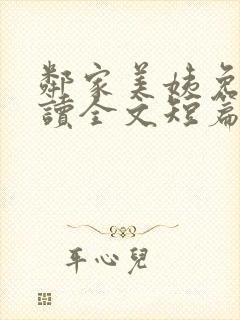 鄰家美姨免
讀全文短篇
平心兒